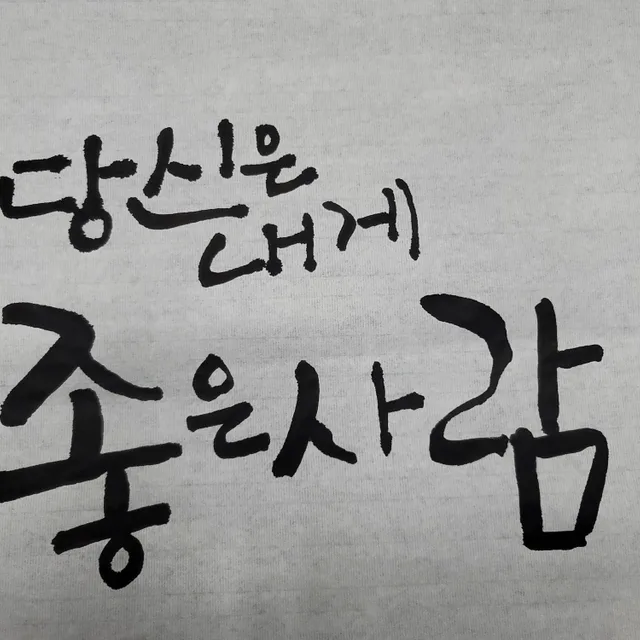 당신은
내게
좋은사람